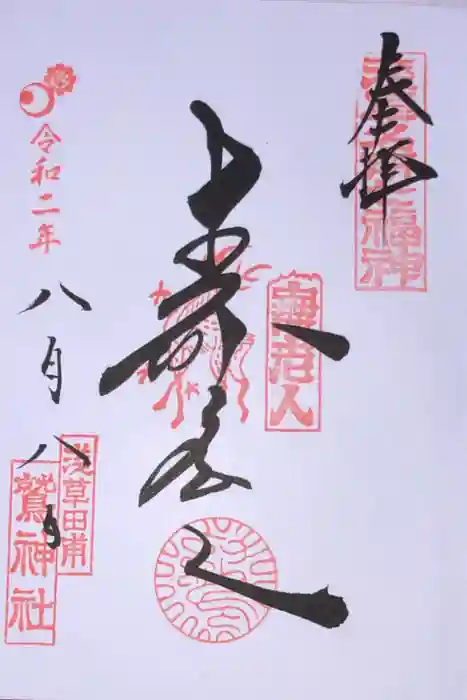 奉拝
浅草名所七福神
寿老人
寿老人
令和二年
八月八日
浅草田甫
鷲神社